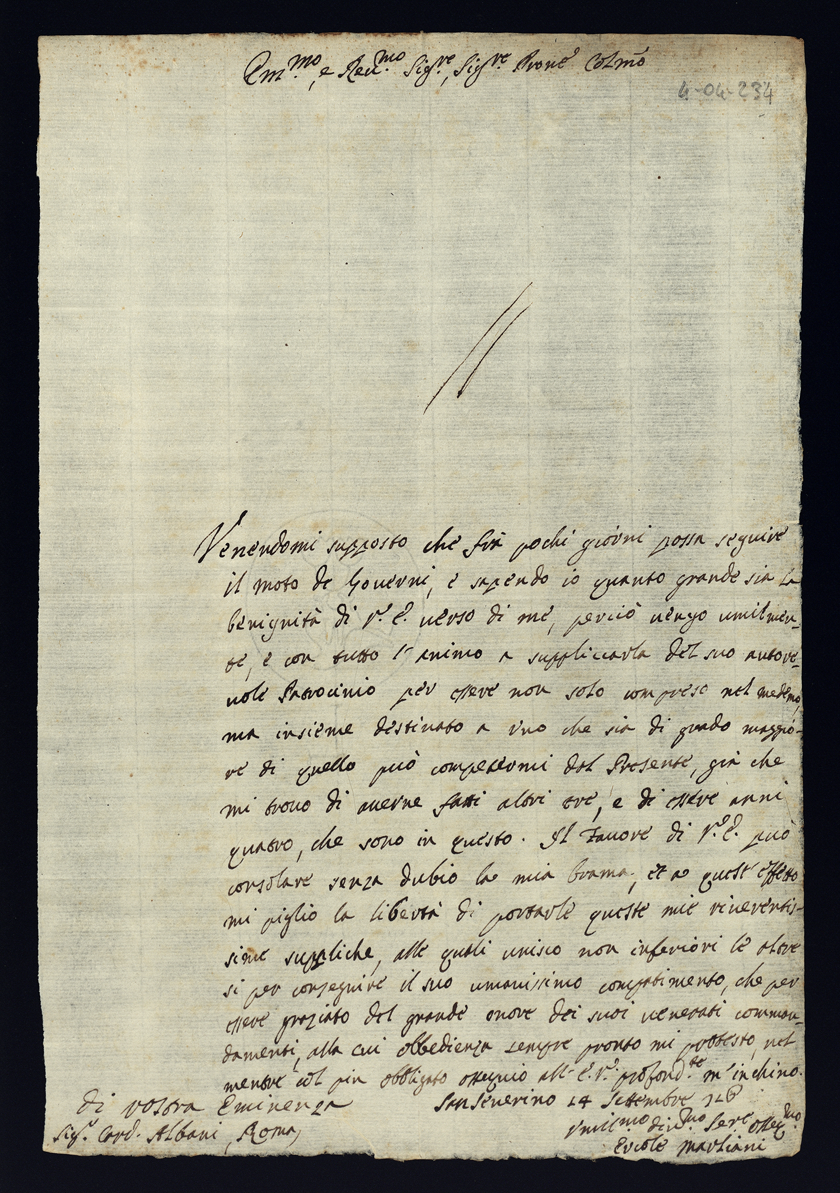 Em.mo, e Reu.mo Sig.re, Sig.re Prone Colmo
4-04-234
Venendomi supposto che frà pochi giorni possa seguire
il moto de Gouerni, e sapendo io quanto grande sia la
benignità di V.ª E.ª uerso di me, perciò uengo umilmen-
te, e con tutto l'animo a suppliccarla del suo autore-
uole Patrocinio per essere non solo compreso nel medemo,
ma insieme destinato a uno che sia di grado maggio-
re di quello può competermi dal Presente, già che
mi trouo di auerne fatti altri tre, e di essere anni
quatro, che sono in questo. Il Fauore di V.ª E.ª può
consolare senza dubio la mia brama, et a quest'effetto
mi piglio la libertà di portarle queste mie riuerentis-
sime suppliche, alle quali unisco non inferiori le altre
si per conseguire il suo umanissimo compatimento, che per
essere graziato del grande onore dei suoi uenerati comman-
damenti, alla cui obbedienza sempre pronto mi protesto, nel
mentre col più obbligato ossequio all'E.V.ª profond.te m'inchino.
di vostra Eminenza
Sanseuerino 14 Settembre
Sig.r Card. Albani, Roma
Umilmo diu.mo Sere osseq.mo
Ercole Marliani